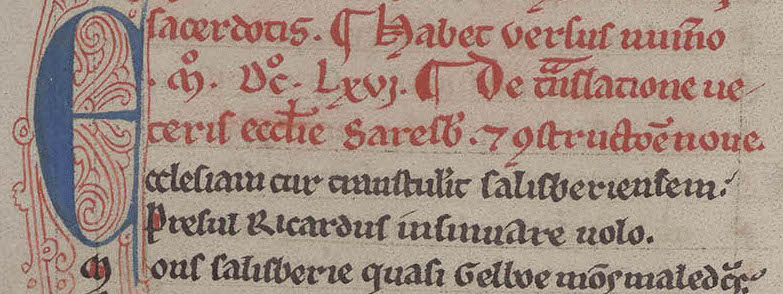 sacerdotis. ¶ Habet versus nu̅i̅o
.mͦ. Dcͦ. Lxvj. ¶ De t̅nslatione ue-
teris eccl̅ie Saresb̅. ⁊ ꝯstructo̅e noue.
Ecclesiam cur transtulit salisberiensem.
Presul Ricardus insinuare uolo.
Mons salisberie quasi Gelboe mo̅s maled̅cs.